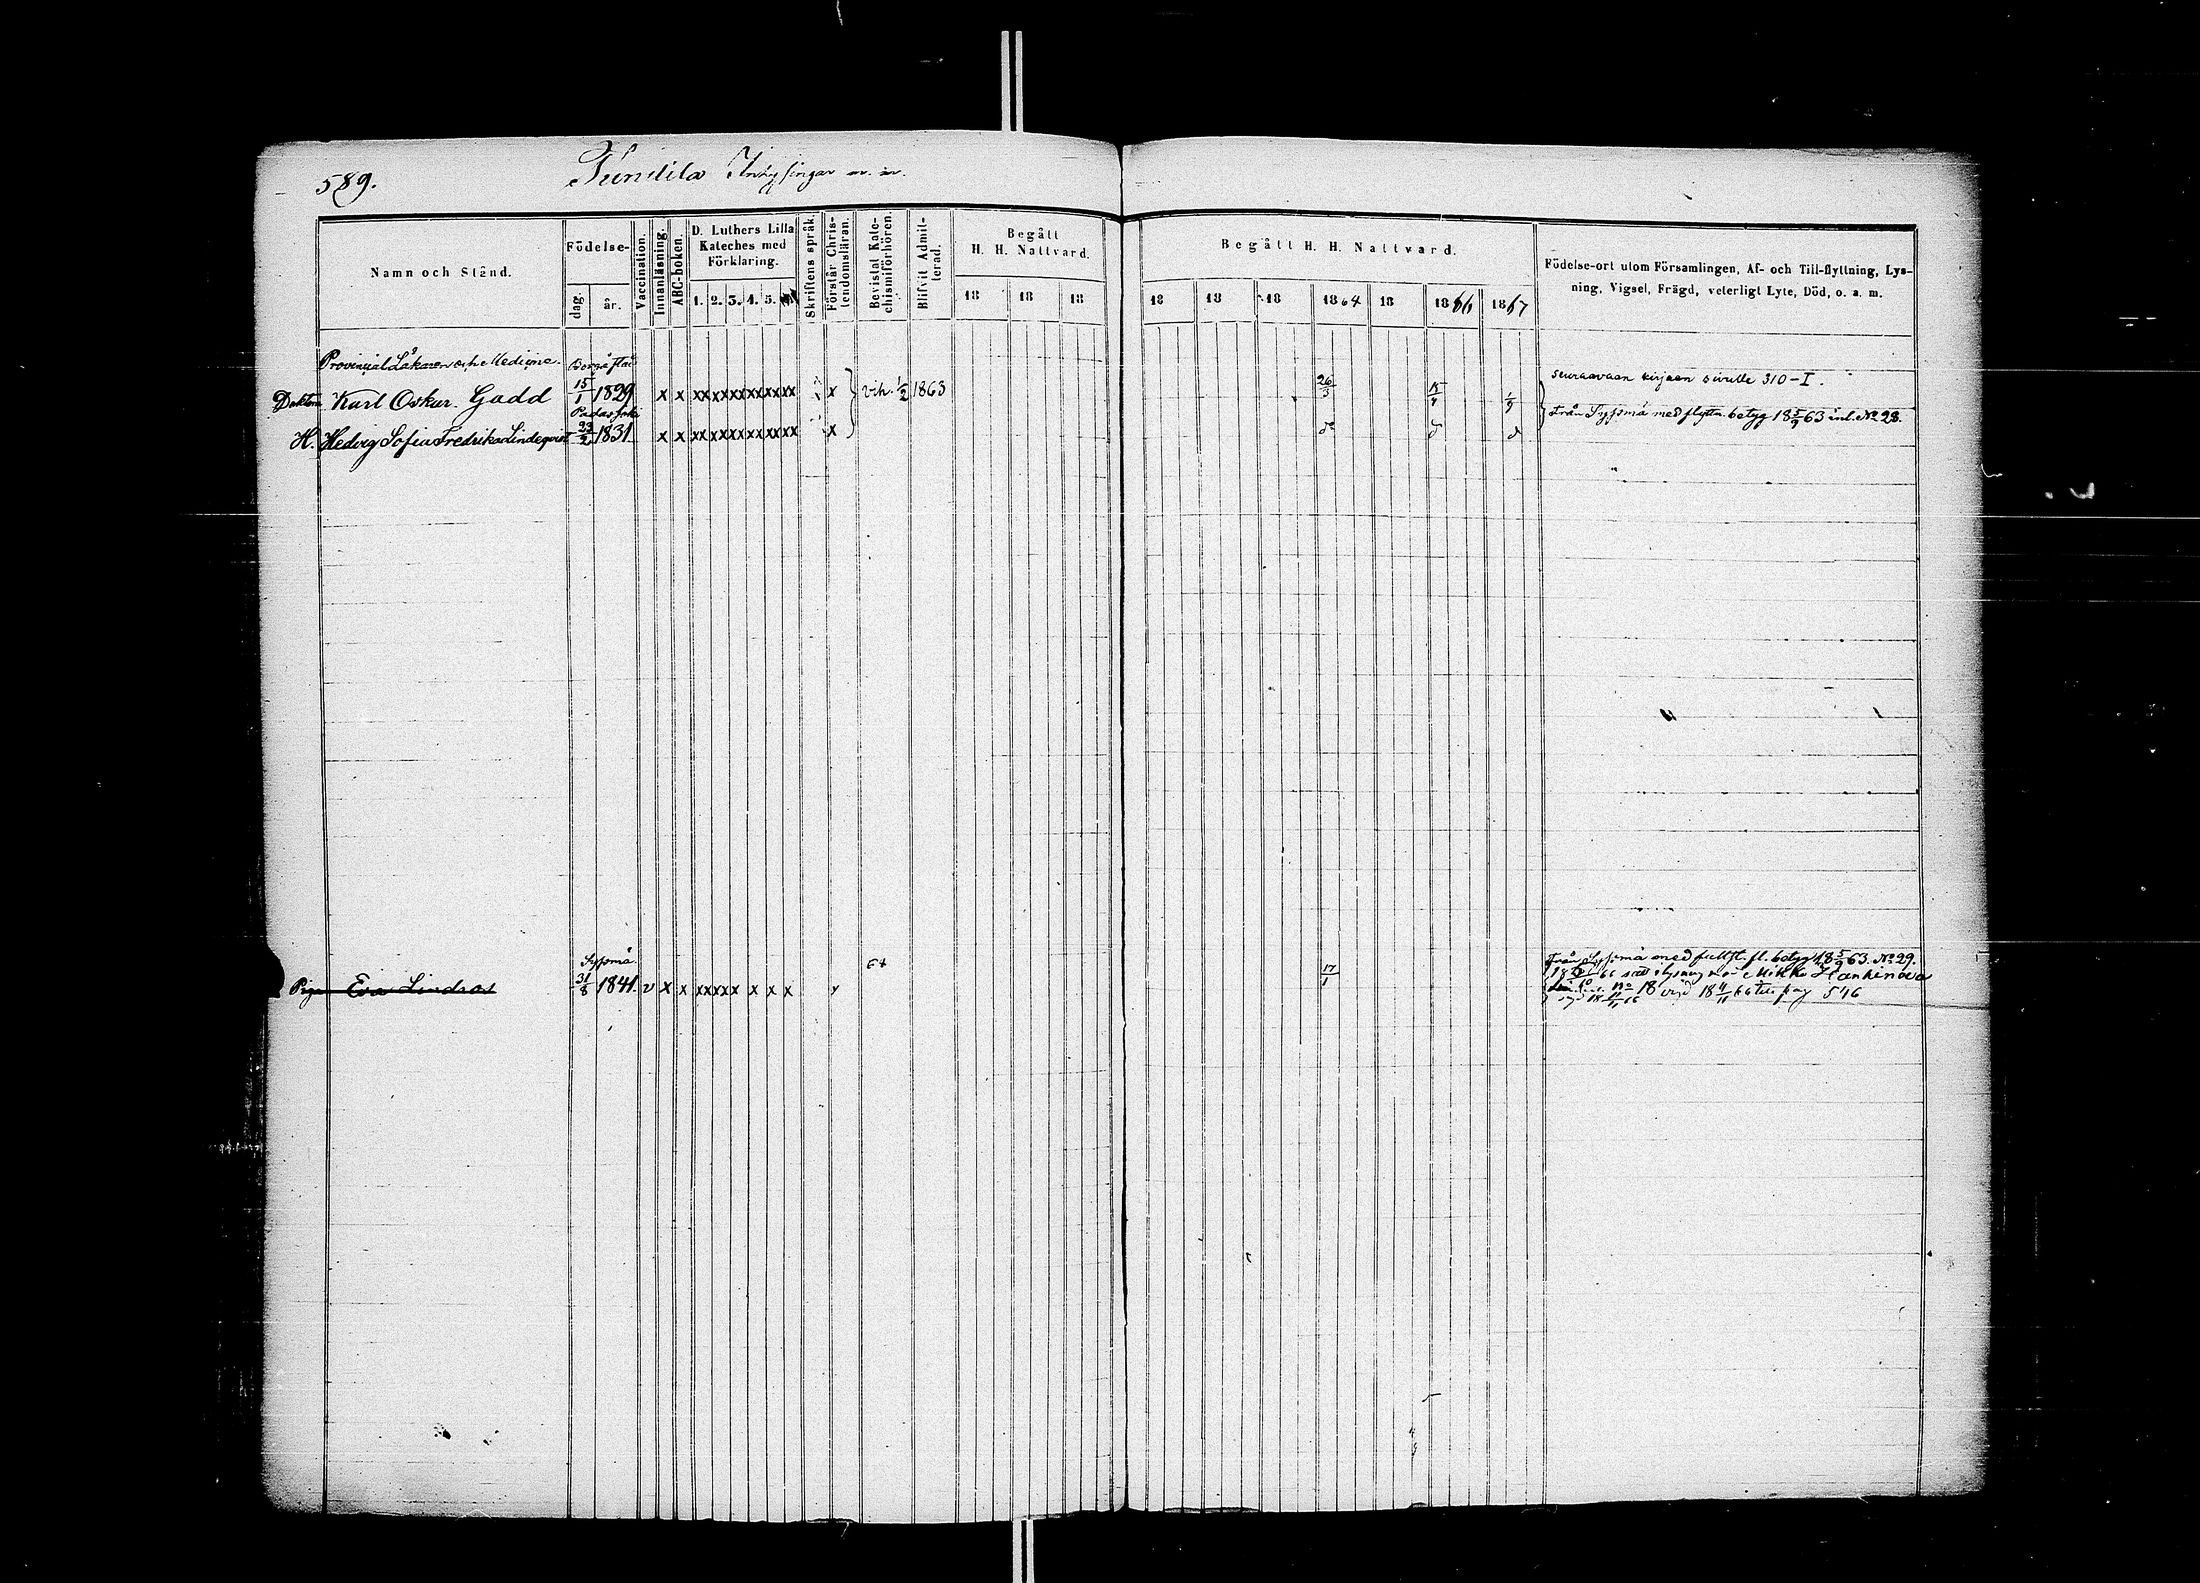 589.
Inhysingar m. m.
Namn och Stånd.
Födelse-
dag.
år.
Vaccination.
Innanläsning.
ABC-boken.
D. Luthers Lilla
Kateches med
Förklaring.
1. 2. 3. 4. 5.
Skriftens språk.
Förstår Chris-
tendomsläran.
Bevistat Kate-
chismiförhören.
Blifvit Admit-
terad.
Begått
H. H. Nattvard.
18 18 18
Begått H. H. Nattvard.
18 18 18 1864 18 1866 1867
Födelse-ort utom Församlingen, Af- och Till-flyttning, Lys-
ning, Vigsel, Frägd, veterligt Lyte, Död, o. a. m.
Provincial Läkaren och Medicine- Borgå stad
Doktorn Karl Oskar Gadd 15/1 1829 x x xx xx xx xx xx xx x vih. 1/2 1863 26/3 15/4 1/9 seuraavaan kirjaan sivulle 310-I.
Padasjoki
H. Hedvig Sofia Fredrika Lindeqvist 23/2 1831 x x xx xx xx xx xx xx x d:o d:o d:o Från Sysmä med flyttn. betyg 18 5/9 63 inl. No 28.
Sysmä
Piga Eva Lindroos 31/8 1841 v x x xx xx x x x x 17/1 Från Sysmä med fl. betyg 18 5/9 63. No 29.
66 i lysning Mikko Hankinova
18 vigd 18 4/11 66 till pag 546